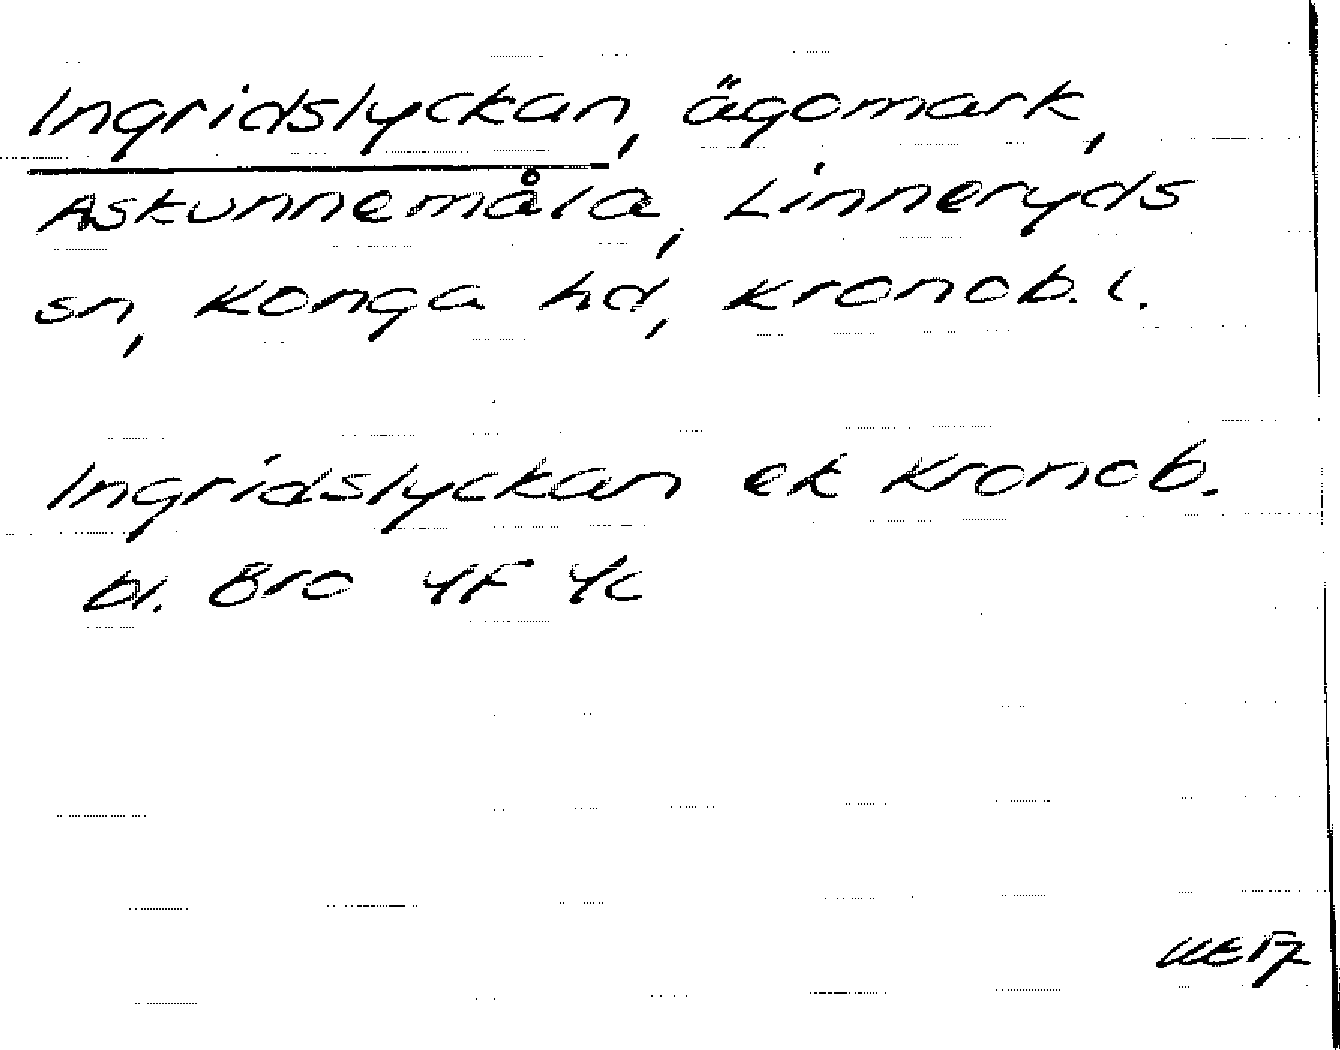 Ingridslyckan, ägomark,
Askunnemåla, Linneryds
sn, Konga hd, Kronob. l.
Ingridslyckan ek Kronob.
bl. Bro 4F 4c